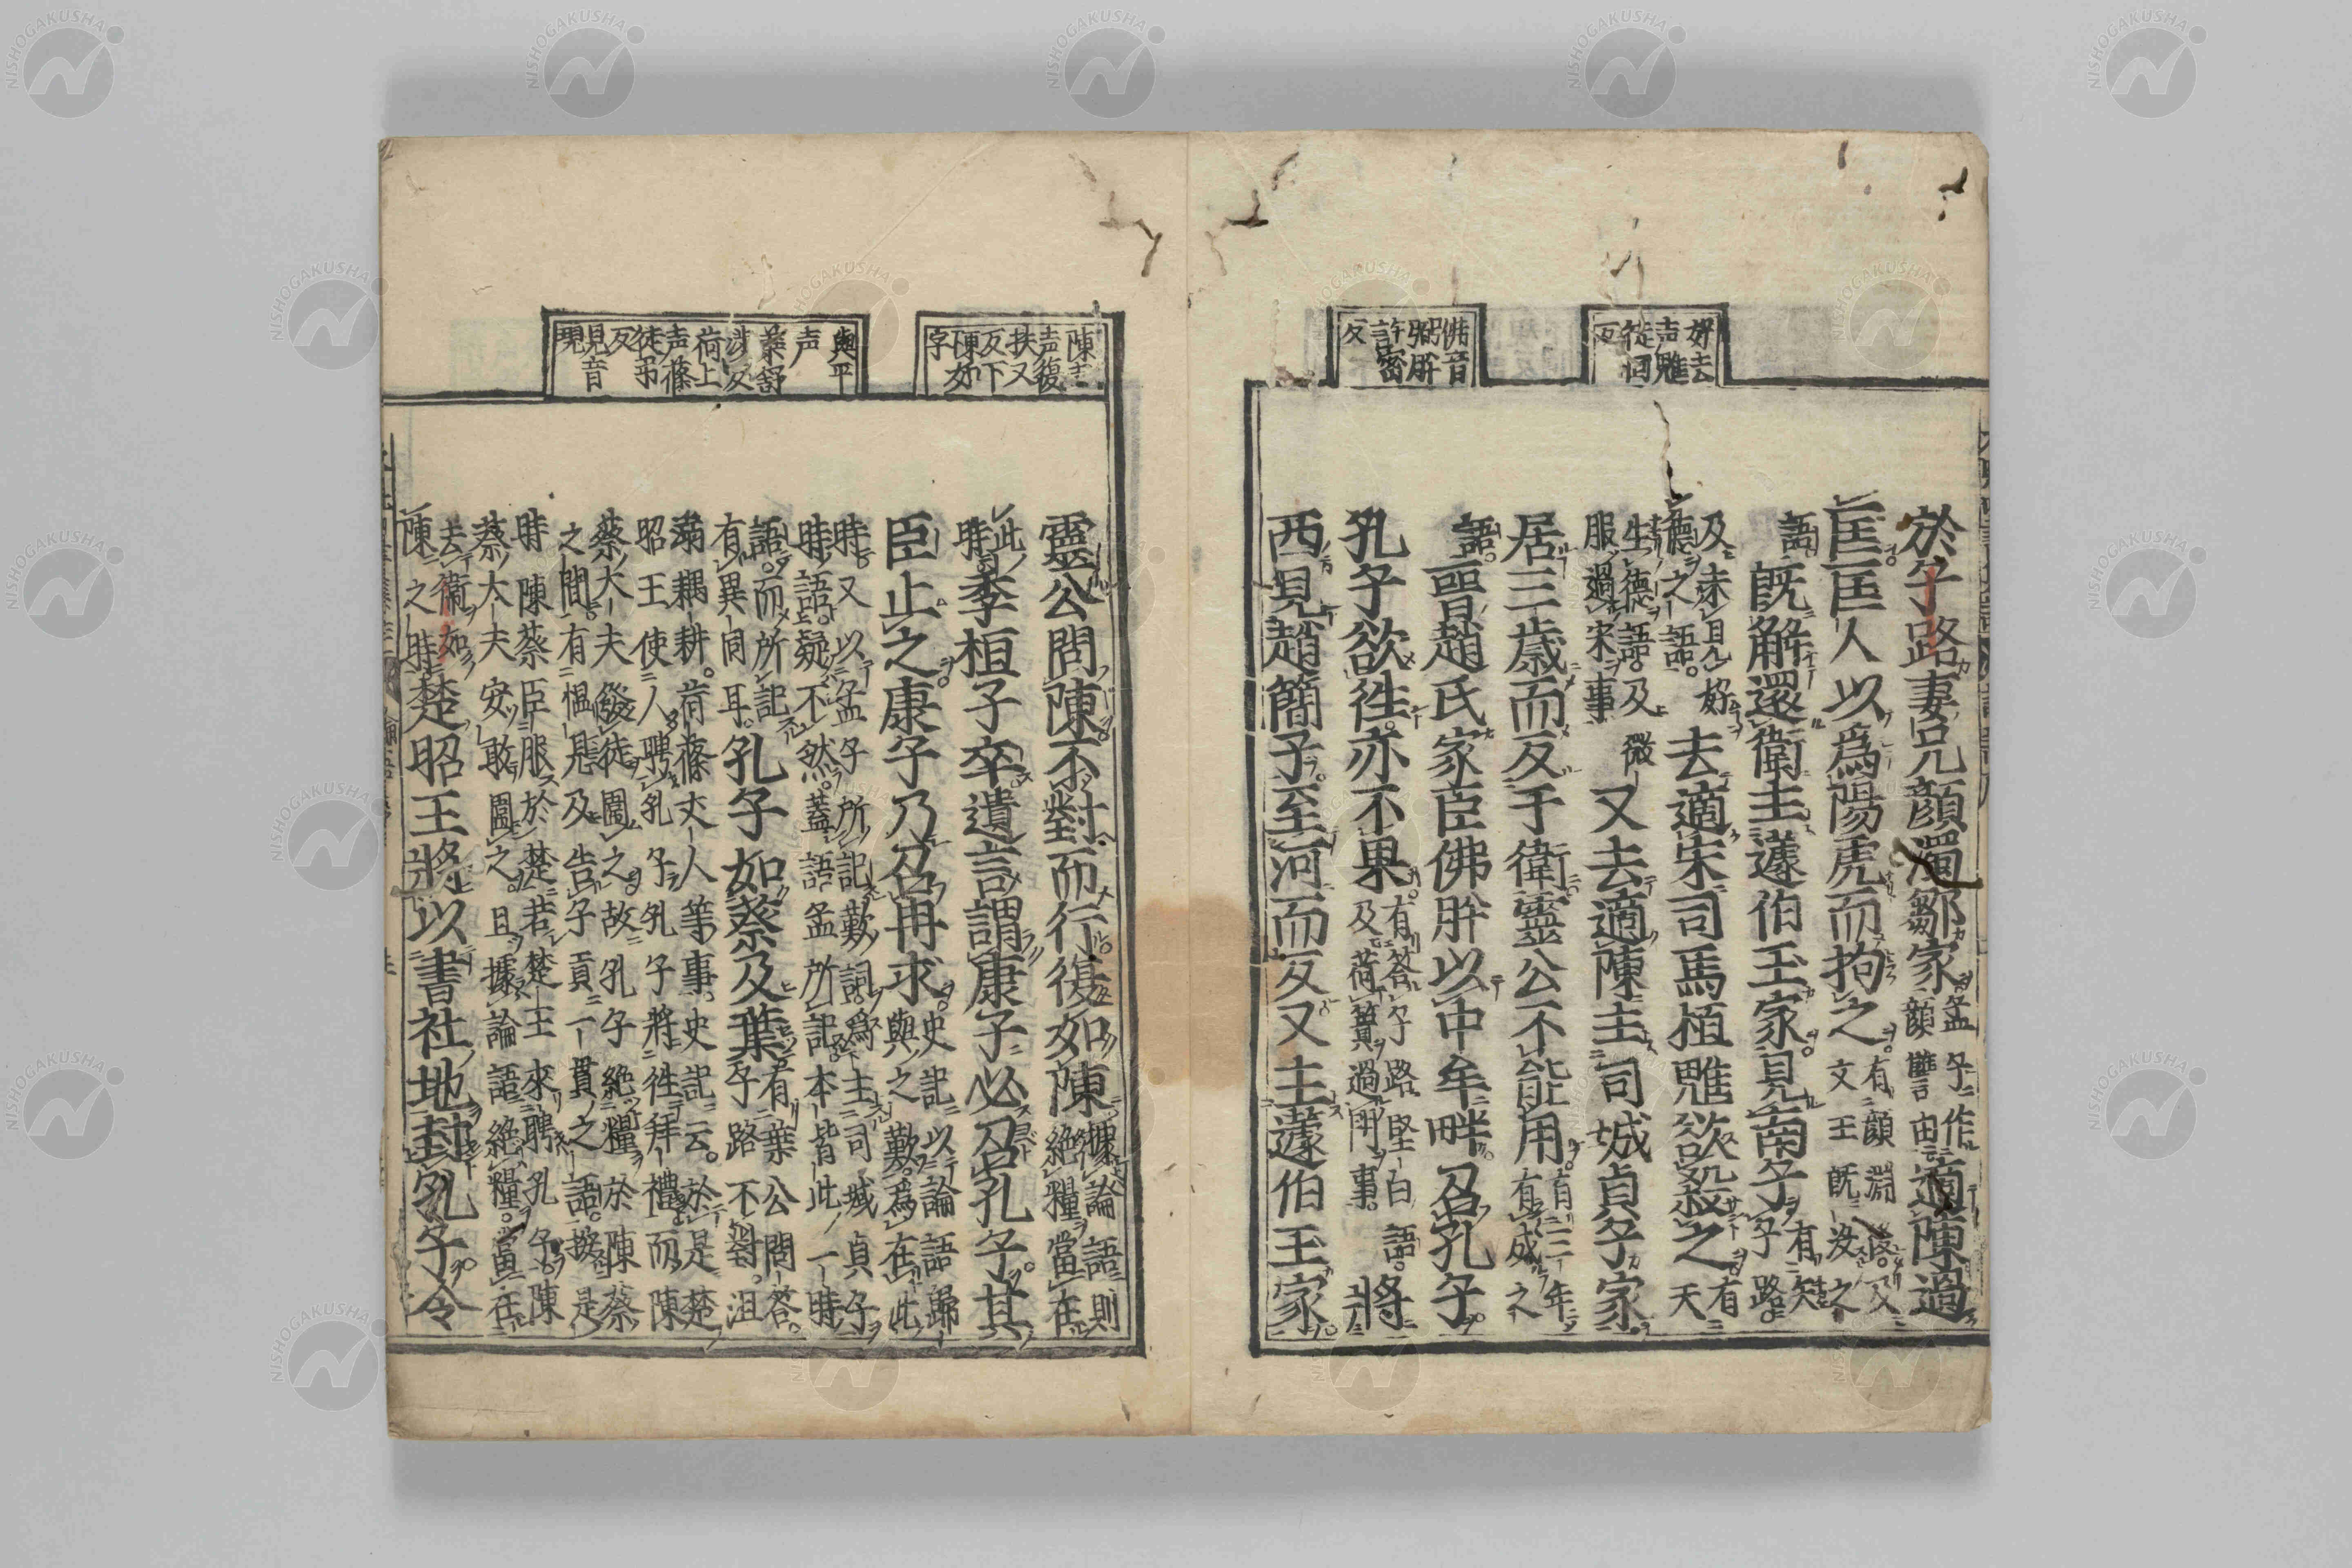 好去
声魋
徒回
反
佛音
弼肸
許密
反
於子路妻兄顔濁鄒家孟子作顔讐由適陳過
匡匡人以爲陽虎而拘之有顔淵後及文王既没之
語既解還衛主蘧伯玉家見南子有矢子路
及未見好德之語去適宋司馬桓魋欲殺之有天
生德語及微服過宋事又去適陳主司城貞子家
居三歳而反于衛靈公不能用有三年有成之
語晉趙氏家臣佛肸以中牟畔召孔子
孔子欲往亦不果有答子路堅白語及荷蕢過門事將
西見趙簡子至河而反又主蘧伯玉家
陳去
声復
扶又
反下
陳如
字
與平
声
葉舒
渉反
荷上
声蓧
徒弔
反
見音
現
靈公問陳不對而行復如陳據論語則絶糧當在
此時季桓子卒遺言謂康子必召孔子其
臣止之康子乃召冉求史記以論語歸與之歎爲在此
時又以孟子所記歎詞爲主司城貞子時語疑不然蓋語孟所記本皆此一時
語而所記有異同耳孔子如蔡及葉有葉公問答子路不對沮
溺耦耕荷蓧丈人等事史記云於是楚昭王使人聘孔子孔子將往拜禮而陳
蔡大夫發徒圍之故孔子絶糧於陳蔡之間有慍見及告子貢一貫之語按是
時陳蔡臣服於楚若楚王來聘孔子陳蔡大夫安敢圍之且據論語絶糧當在
去衛如陳之時楚昭王將以書社地封孔子令